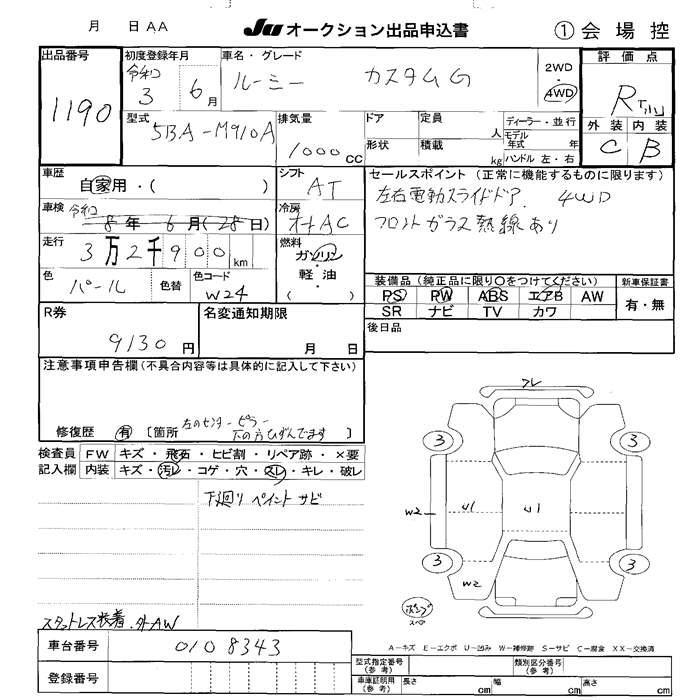 月 日 AA JU オークション出品申込書 ① 会場控
出品番号 1190
初度登録年月 令和 3 6月
車名・グレード ルーミー カスタムG
2WD
4WD
評価点 R
外装 内装
C B
型式 5BA-M910A
排気量 1000cc
ドア 定員 人
形状 積載 kg
ディーラー・並行
モデル年式 年
ハンドル 左・右
車歴 自家用・( )
シフト AT
車検 令和 8年6月(28日)
冷房 AC
走行 3万2千900km
燃料 ガソリン・軽油 ( )
色 パール 色替
色コード W24
セールスポイント(正常に機能するものに限ります)
左右電動スライドドア. 4WD
フロントガラス熱線あり
装備品(純正品に限り○をつけてください) 新車保証書
PS PW ABS エアB AW 有・無
SR ナビ TV カワ
後日品
R券 9130円
名変通知期限 月 日
注意事項申告欄(不具合内容等は具体的に記入して下さい)
修復歴 有 [箇所 左のセンターピラー
下の方ひずんでます ]
検査員 FW キズ・飛石・ヒビ割・リペア跡・×要
記入欄 内装 キズ・汚レ・コゲ・穴・スレ・キレ・破レ
下廻り ペイント サビ
フレ
3 3
W2 U1 U1
3 3
W2
スペア
スタットレス装着.外AW
車台番号 0108343
登録番号
A-キズ E-エクボ U-凹み W-補修跡 S-サビ C-腐食 XX-交換済
型式指定番号(参考) 類別区分番号(参考)
車庫証明用(参考) 長さ cm 幅 cm 高さ cm